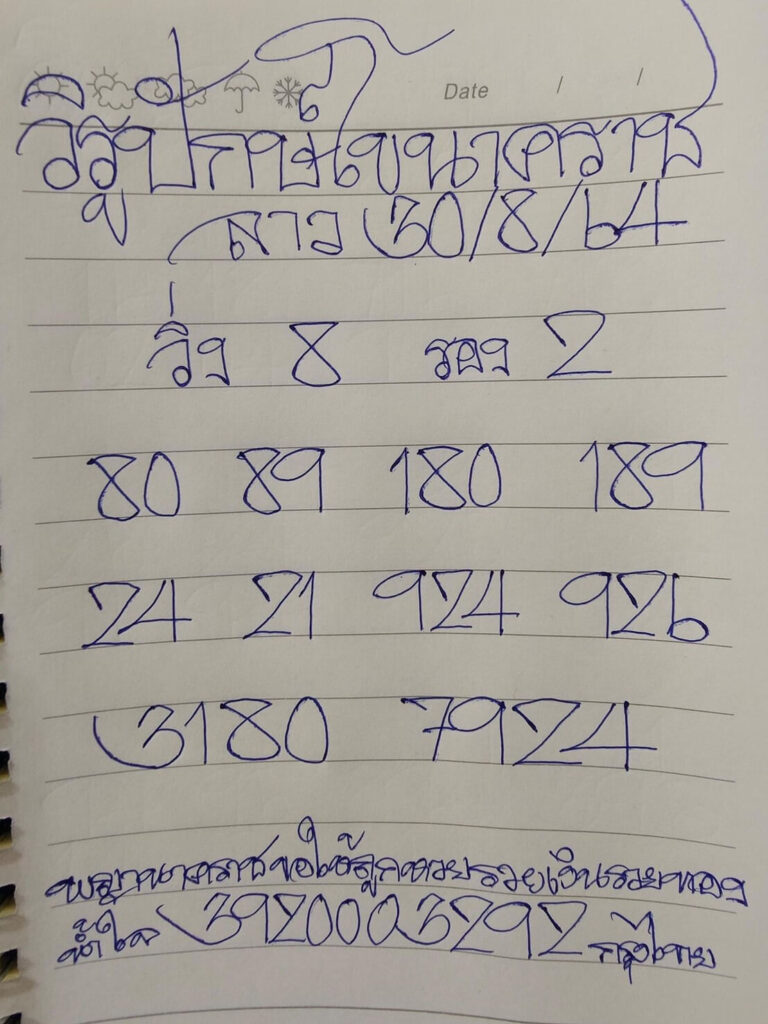 Date / /
วิรูปักษ์โขนาคราช
ลาว 30/8/64
วิ่ง 8 รอง 2
80 89 180 189
24 21 924 926
3180 7924
พญานาคราชขอให้ลูกหวยรวยเงินรวยทอง
น้ำใจ 3920003292 กรุงไทย